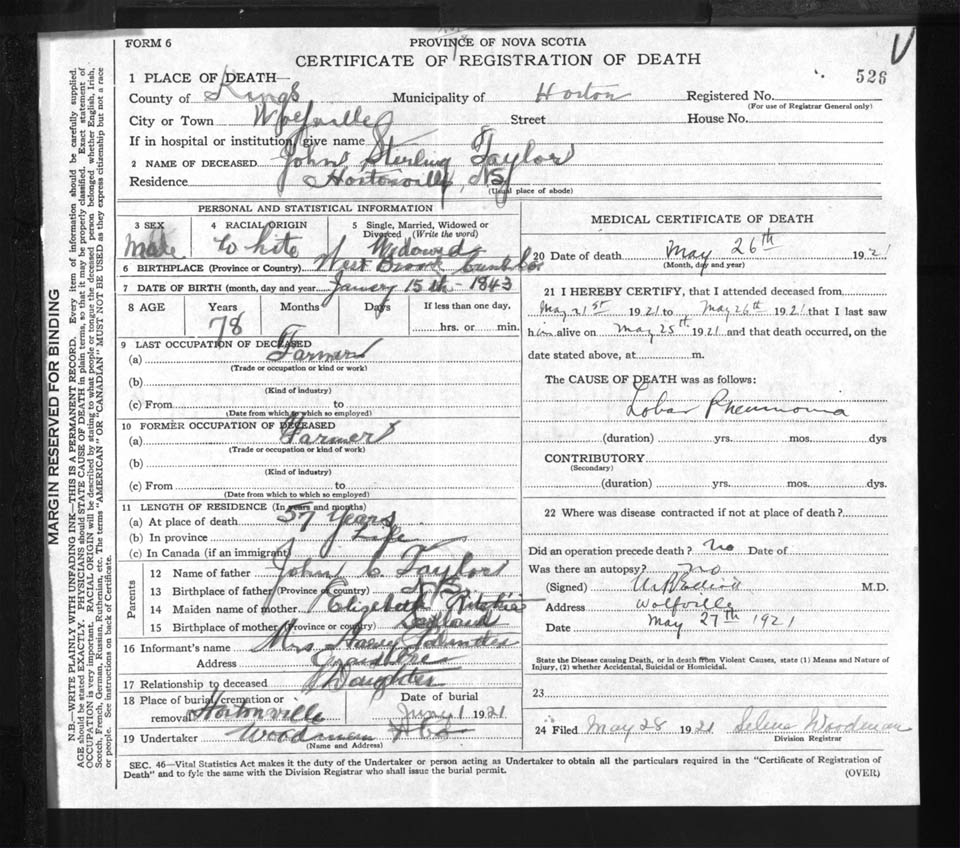 FORM 6
PROVINCE OF NOVA SCOTIA
CERTIFICATE OF REGISTRATION OF DEATH
526
1 PLACE OF DEATH—
County of Kings Municipality of Horton Registered No.
(For use of Registrar General only)
City or Town Wolfville Street House No.
If in hospital or institution, give name
2 NAME OF DECEASED John Sterling Taylor
Residence Hortonville, NS
(Usual place of abode)
PERSONAL AND STATISTICAL INFORMATION
3 SEX 4 RACIAL ORIGIN 5 Single, Married, Widowed or Divorced (Write the word)
Male White Widowed
6 BIRTHPLACE (Province or Country) West Co
7 DATE OF BIRTH (month, day and year) January 15th - 1843
8 AGE Years Months Days If less than one day,
78 hrs. or min.
9 LAST OCCUPATION OF DECEASED
(a) Farmer
(Trade or occupation or kind of work)
(b)
(Kind of industry)
(c) From to
(Date from which to which so employed)
10 FORMER OCCUPATION OF DECEASED
(a) Farmer
(Trade or occupation or kind of work)
(b)
(Kind of industry)
(c) From to
(Date from which to which so employed)
11 LENGTH OF RESIDENCE (In years and months)
(a) At place of death 57 Years
(b) In province Life
(c) In Canada (if an immigrant)
Parents
12 Name of father John C. Taylor
13 Birthplace of father (Province or country) N.S.
14 Maiden name of mother Elizabeth Ritchie
15 Birthplace of mother (Province or country) Scotland
16 Informant's name Mrs Harry
Address
17 Relationship to deceased Daughter
18 Place of burial, cremation or removal Hortonville Date of burial June 1 1921
19 Undertaker Woodman
(Name and Address)
MEDICAL CERTIFICATE OF DEATH
20 Date of death May 26th 1921
(Month, day and year)
21 I HEREBY CERTIFY, that I attended deceased from
May 21st 1921 to May 26th 1921 that I last saw
him alive on May 25th 1921 and that death occurred, on the
date stated above, at m.
The CAUSE OF DEATH was as follows:
Lobar Pneumonia
(duration) yrs. mos. dys
CONTRIBUTORY
(Secondary)
(duration) yrs. mos. dys.
22 Where was disease contracted if not at place of death?
Did an operation precede death? No Date of
Was there an autopsy? No
(Signed) Elliott M.D.
Address Wolfville
Date May 27th 1921
State the Disease causing Death, or in death from Violent Causes, state (1) Means and Nature of
Injury, (2) whether Accidental, Suicidal or Homicidal.
23
24 Filed May 28 1921 Selene Woodman
Division Registrar
SEC. 46—Vital Statistics Act makes it the duty of the Undertaker or person acting as Undertaker to obtain all the particulars required in the "Certificate of Registration of
Death" and to fyle the same with the Division Registrar who shall issue the burial permit.
(OVER)
MARGIN RESERVED FOR BINDING
N.B.—WRITE PLAINLY WITH UNFADING INK—THIS IS A PERMANENT RECORD. Every item of information should be carefully supplied.
AGE should be stated EXACTLY. PHYSICIANS should STATE CAUSE OF DEATH in plain terms, so that it may be properly classified. Exact statement of
OCCUPATION is very important. RACIAL ORIGIN will be described by stating to what people or tongue the deceased person belonged whether English, Irish,
Scotch, French, German, Russian, Ruthenian, etc. The terms "AMERICAN" OR "CANADIAN" MUST NOT BE USED as they express citizenship but not a race
or people. See instructions on back of Certificate.